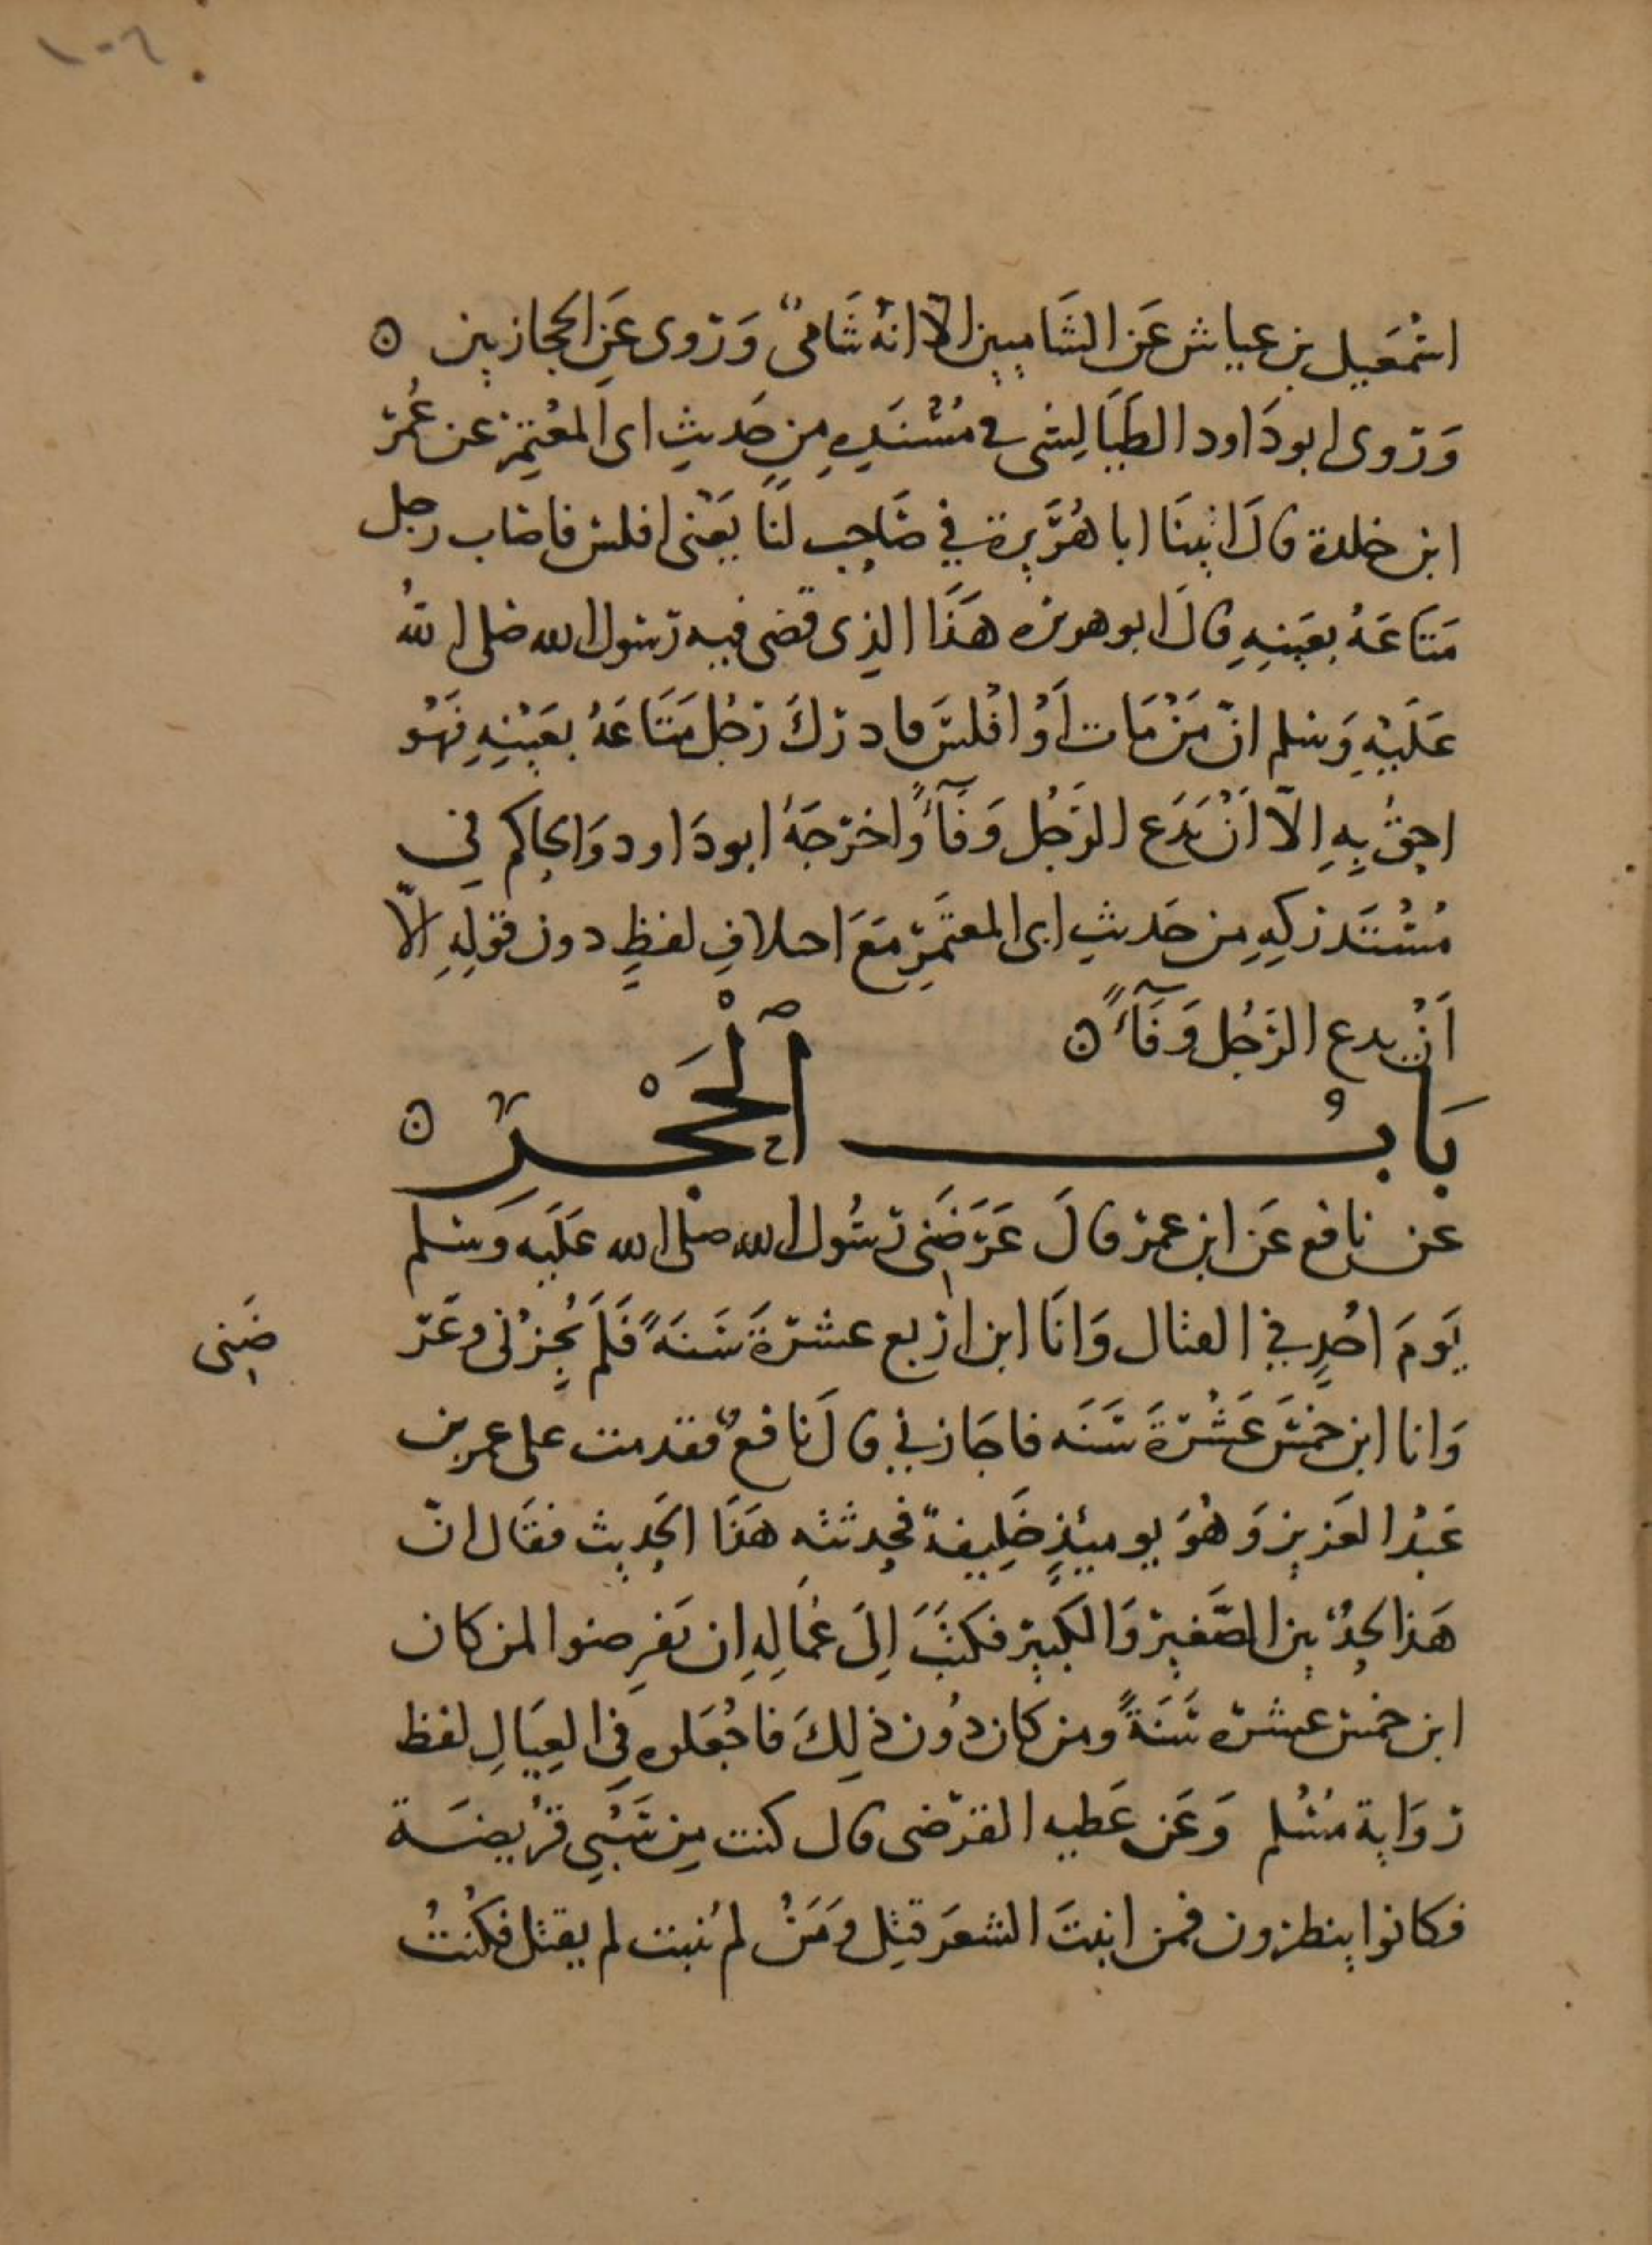 ١٠٦
اسْمَعيل بن عياش عَن الشَاميين الّا انهُ شَاميٌّ وَرَوى عَنِ الحجازيين ٥
وَرَوى ابو دَاود الطَيَالِسى فى مُسْنَدِهِ مِن حَديثِ اى المعْتَمِرْ عن عُمَرَ
ابن خلدة قالَ اتينَا ابا هُرَيرة في صَاحِبٍ لنَا يَعْنى افلس فاصَاب رجل
مَتَاعَهُ بعَينِهِ قالَ ابو هريره هَذَا الذِى قضى فيه رَسُول الله صَلى اللهُ
عَلَيْهِ وَسَلم انّ مَنْ مَات اَوْ افْلسَ فادرَكَ رَجُل مَتَاعَهُ بعَيْنِهِ فَهُو
احقُّ بِهِ اِلاّ اَنْ يَدَع الرَجُل وَفَآءً واخرَجَهُ ابو دَاود وَالحاكم في
مُسْتَدركِهِ مِن حَديثِ ابى المعتَمِرِ مَعَ احلافِ لفظٍ دون قولِهِ الّا
اَنْ يدع الرَجُل وَفَآءً ٥
بَابُ الْحَجْرِ ٥
عن نافع عَن ابن عمرَ قالَ عَرَضَنى رَسُول الله صلى الله عَلَيه وَسَلم
يَومَ احُدٍ في القتال وَانَا ابن اربع عشرَةَ سَنَةً فَلَم يُجِزْنى وعَرَ
ضَنِى
وَانا ابن خمْسَ عَشْرَةَ سَنَه فاجَازني قالَ نافعٌ فقدمت على عمر بن
عَبْد العَزيز وَهُوَ يوميئذٍ خَلِيفة فحدثته هَذَا الحَديث فقَال انّ
هَذا لحدٌ بين الصَّغير وَالكَبير فكتَبَ اِلَى عُمَّالِهِ ان يَفرِضوا لمن كان
ابن خمس عشرَه سَنَةً ومن كان دُون ذلِكَ فاجْعَلوه في العِيَالِ لفظ
رَوَاية مُسْلم وَعَن عَطيه القرَضى قال كنت مِن سَبْىِ قرُيضَة
فكانوا ينظرون فمن انبتَ الشعَر قتِل وَمَنْ لم يُنبت لم يقتل فكُنْتُ